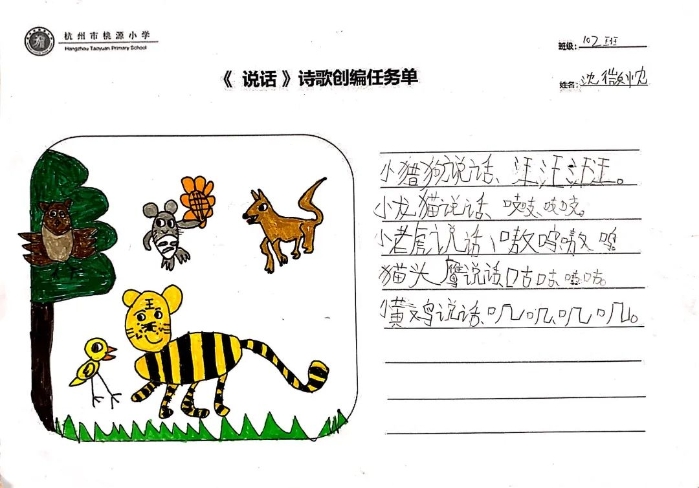 杭州市桃源小学
Hangzhou Taoyuan Primary School
班级: 102班
《 说话 》诗歌创编任务单
姓名: 沈
小猎狗说话、汪汪汪汪。
小龙猫说话、吱吱吱吱。
小老虎说话、嗷呜嗷呜
猫头鹰说话、咕咕咕咕。
小黄鸡说话、叽叽叽叽。
王